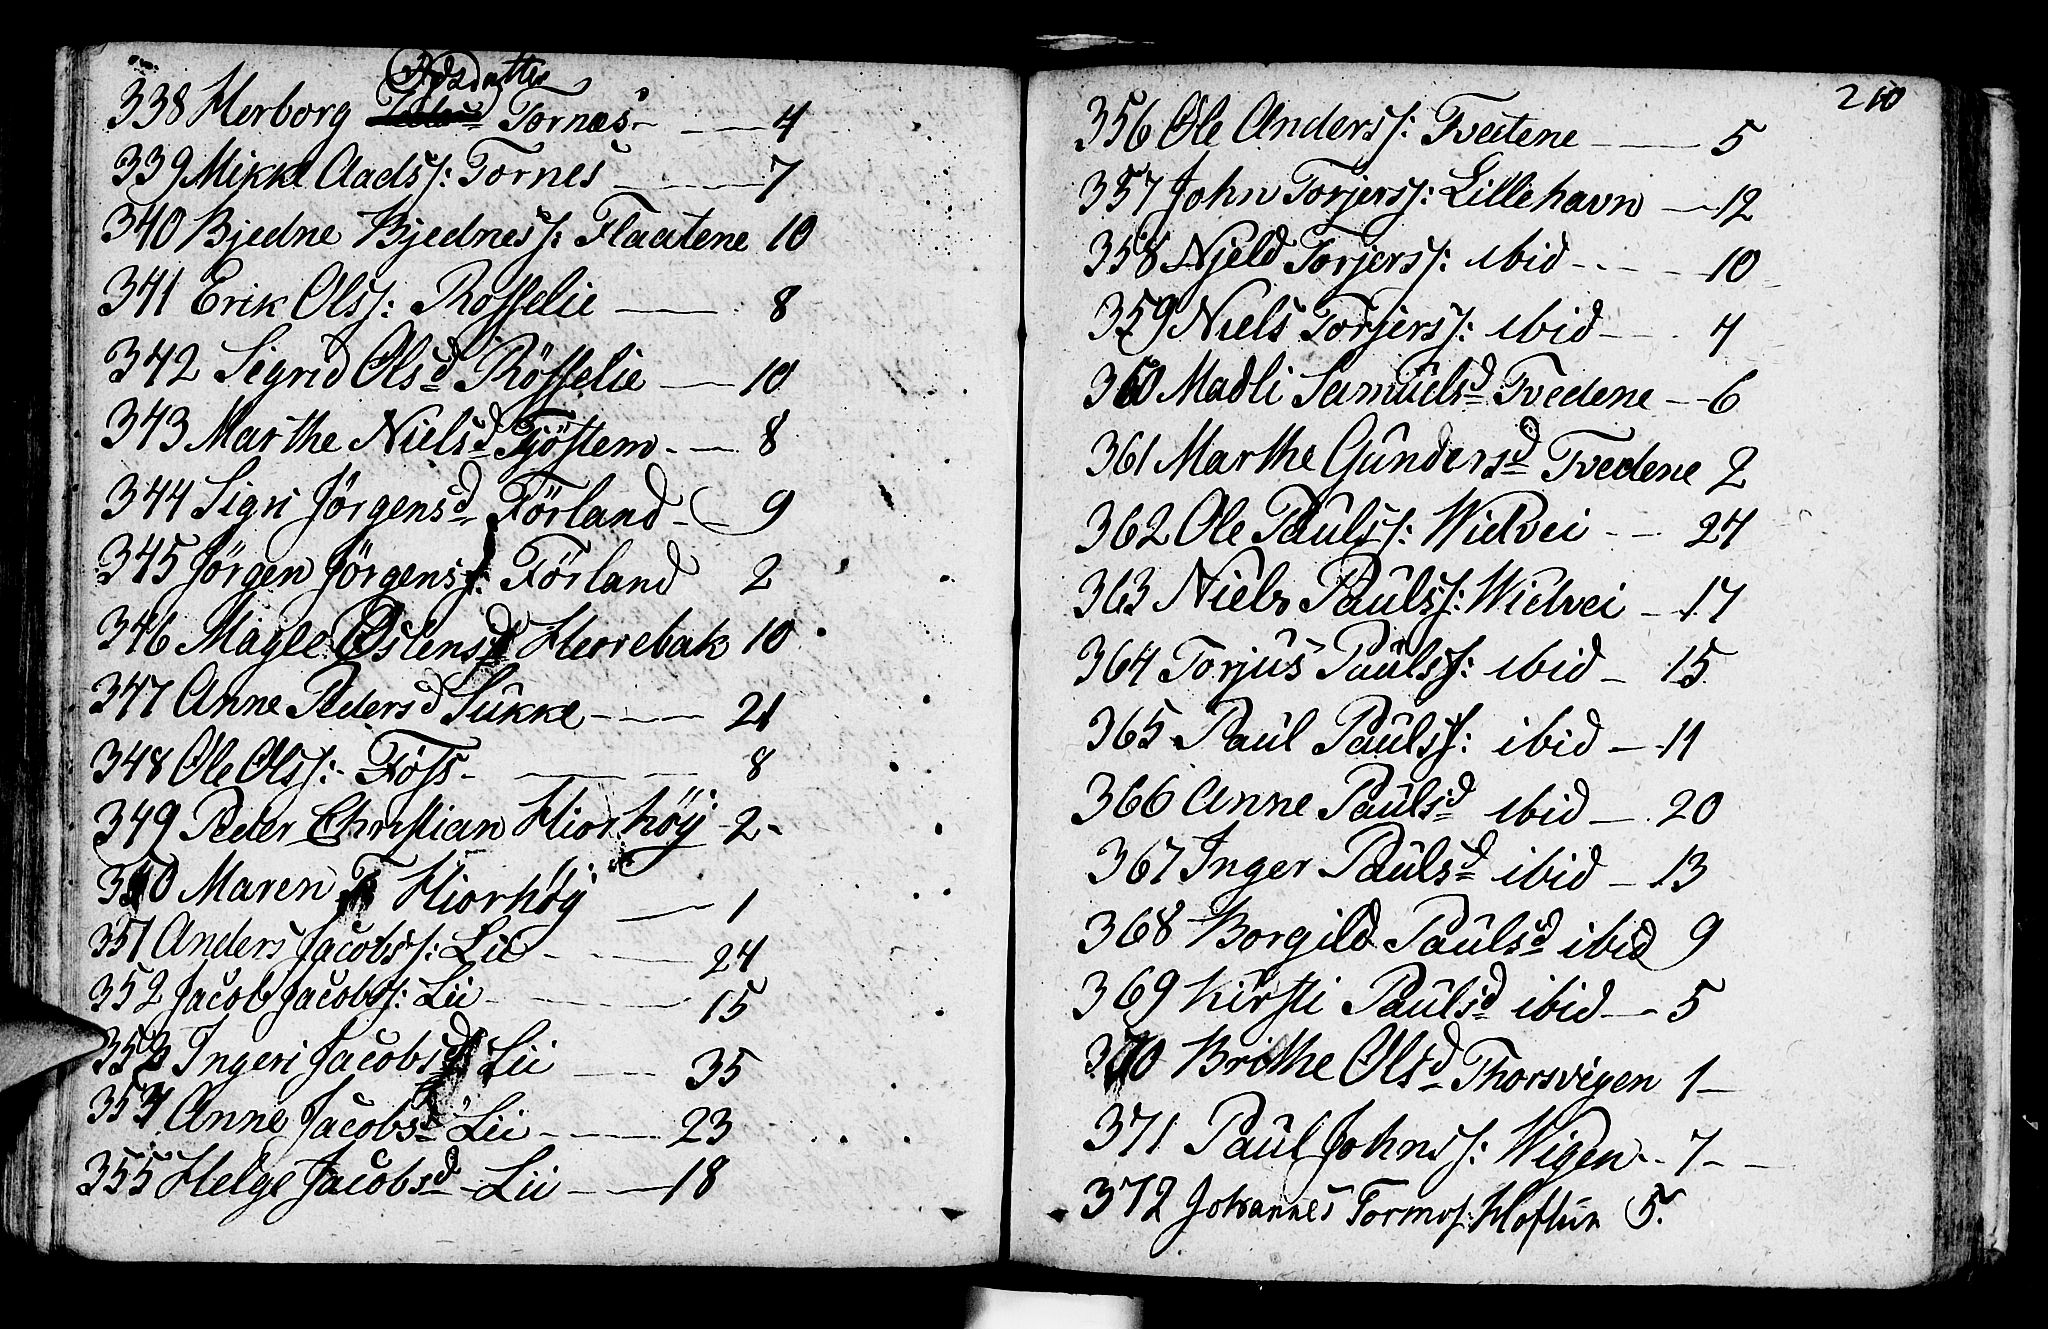 338 Herborg Adsdatter Tornes - 4
339 Mikkel Aads s: Tornes - 7
340 Bjedne Bjednes s: Flaatene 10
341 Erik Ols s: Rösselie - 8
342 Sigrid Olsd Rösselie - 10
343 Marthe Nielsd Tjöstem - 8
344 Sigri Jörgensd Förland - 9
345 Jörgen Jörgens s: Förland 2
346 Magle Östensd Herrebak 10
347 Anne Pedersd Sükke - 21
348 Ole Ols s: Föss - 8
349 Peder Christian Hiorhöÿ - 2 -
350 Maren Hiorhöÿ - 1
351 Anders Jacobs s: Lii - 24
352 Jacob Jacobs s: Lii - 15
353 Ingeri Jacobsd Lii - 35
354 Anne Jacobsd Lii - 23
355 Helge Jacobsd Lii - 18
210
356 Ole Anders s: Tvedtene - 5
357 John Torjers s: Lillehavn - 12
358 Njeld Torjers s: ibid - 10
359 Niels Torjers s: ibid - 7
360 Madli Samüelsd Tvedene - 6
361 Marthe Gündersd Tvedene 2
362 Ole Paüls s: Widvei - 24
363 Niels Paüls s: Widvei - 17
364 Torjüs Paüls s: ibid - 15
365 Paül Paüls s: ibid - 11
366 Anne Paülsd ibid - 20
367 Inger Paülsd ibid - 13
368 Borgild Paülsd ibid 9
369 Kirsti Paülsd ibid - 5
370 Brithe Olsd Thorsvigen 1 -
371 Paül Johns s: Wigen - 7 -
372 Johannes Tormos: Hoftün 5.